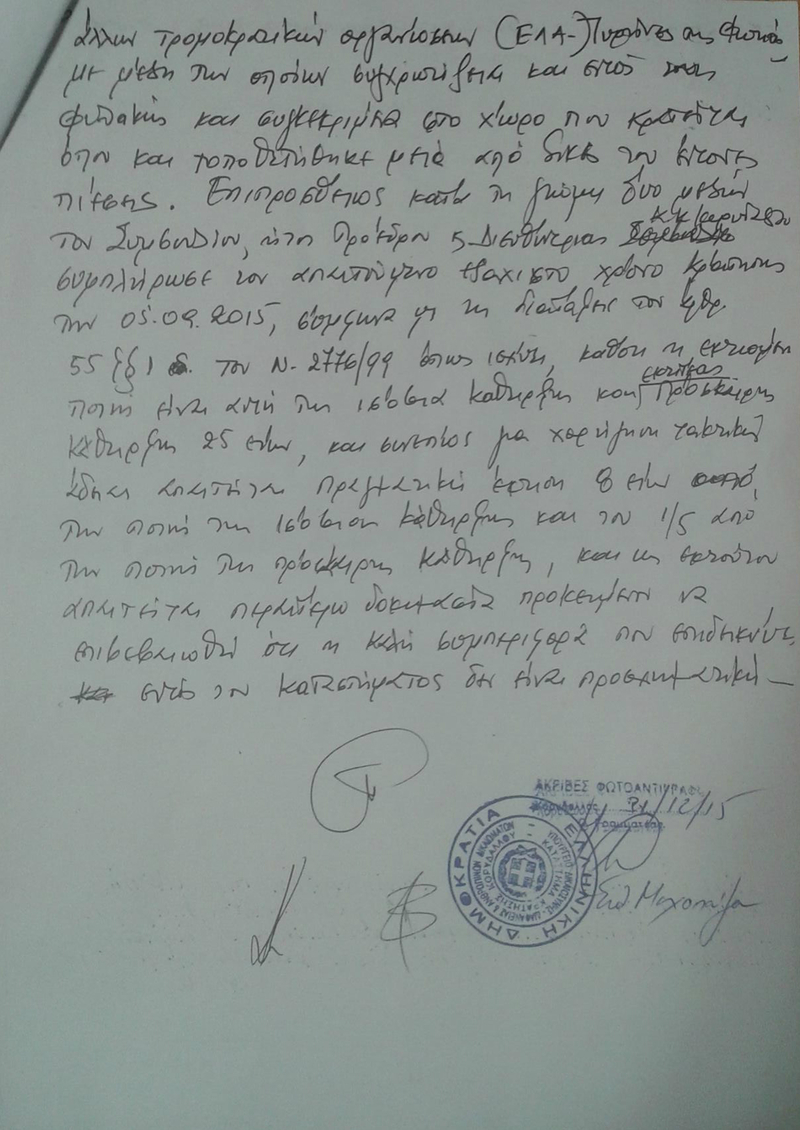 άλλων τρομοκρατικών οργανώσεων (ΕΛΑ- Πυρήνες της Φωτιάς
με μέλη των οποίων συγχρωτίζεται και εντός της
φυλακής και συγκεκριμένα στο χώρο που κρατείται
όπου και τοποθετήθηκε μετά από δικές του έντονες
πιέσεις. Επιπροσθέτως κατά τη γνώμη δύο μελών
του Συμβουλίου, ήτοι Προέδρου & Διευθύντριας Κ.Κ. Κορυδαλλού
συμπλήρωσε τον απαιτούμενο ελάχιστο χρόνο κράτησης
την 05.09.2015, σύμφωνα με τις διατάξεις του άρθρ.
55 § 1 του Ν. 2776/99 όπως ισχύει, καθόσον η εκτιόμενη
ποινή είναι αυτή της ισόβιας κάθειρξης και εκτίσεως πρόσκαιρης
κάθειρξης 25 ετών, και συνεπώς για χορήγηση τακτικής
άδειας απαιτείται πραγματική έκτιση 8 ετών
την ποινή της ισόβιας κάθειρξης και του 1/5 από
την ποινή της πρόσκαιρης κάθειρξης, και ως εκ τούτου
απαιτείται περαιτέρω δοκιμασία προκειμένου να
επιβεβαιωθεί ότι η καλή συμπεριφορά που επιδεικνύει
εντός του καταστήματος δεν είναι προσχηματική –
ΑΚΡΙΒΕΣ ΦΩΤΟΑΝΤΙΓΡΑΦΟ
Κορυδαλλός 31/12/15
Γραμματέας
ΕΛΛΗΝΙΚΗ ΔΗΜΟΚΡΑΤΙΑ
ΥΠΟΥΡΓΕΙΟ ΔΙΚΑΙΟΣΥΝΗΣ, ΔΙΑΦΑΝΕΙΑΣ & ΑΝΘΡΩΠΙΝΩΝ ΔΙΚΑΙΩΜΑΤΩΝ
ΚΑΤΑΣΤΗΜΑ ΚΡΑΤΗΣΗΣ ΚΟΡΥΔΑΛΛΟΥ